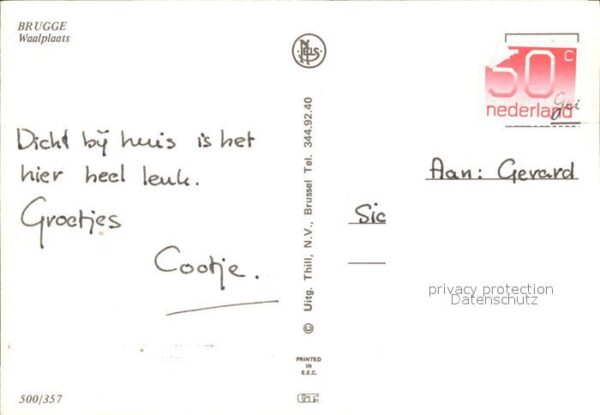 BRUGGE
Waalplaats
Dicht bij huis is het
hier heel leuk.
Groetjes
Cootje.
500/357
NELS
© Uitg. Thill, N.V., Brussel Tel. 344.92.40
PRINTED
IN
E.E.C.
50 c
nederland
Aan: Gerard
Sic
privacy protection
Datenschutz